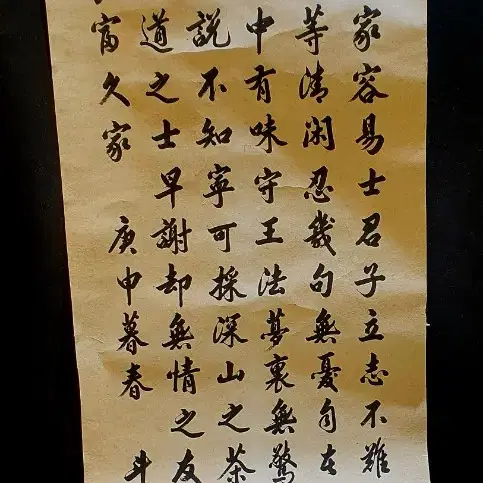 家容易士君子立志不難
等清閑忍幾句無憂自在
中有味守王法夢裏無驚
說不知寧可採深山之茶
道之士早謝却無情之友
富久家 庚申暮春 斗